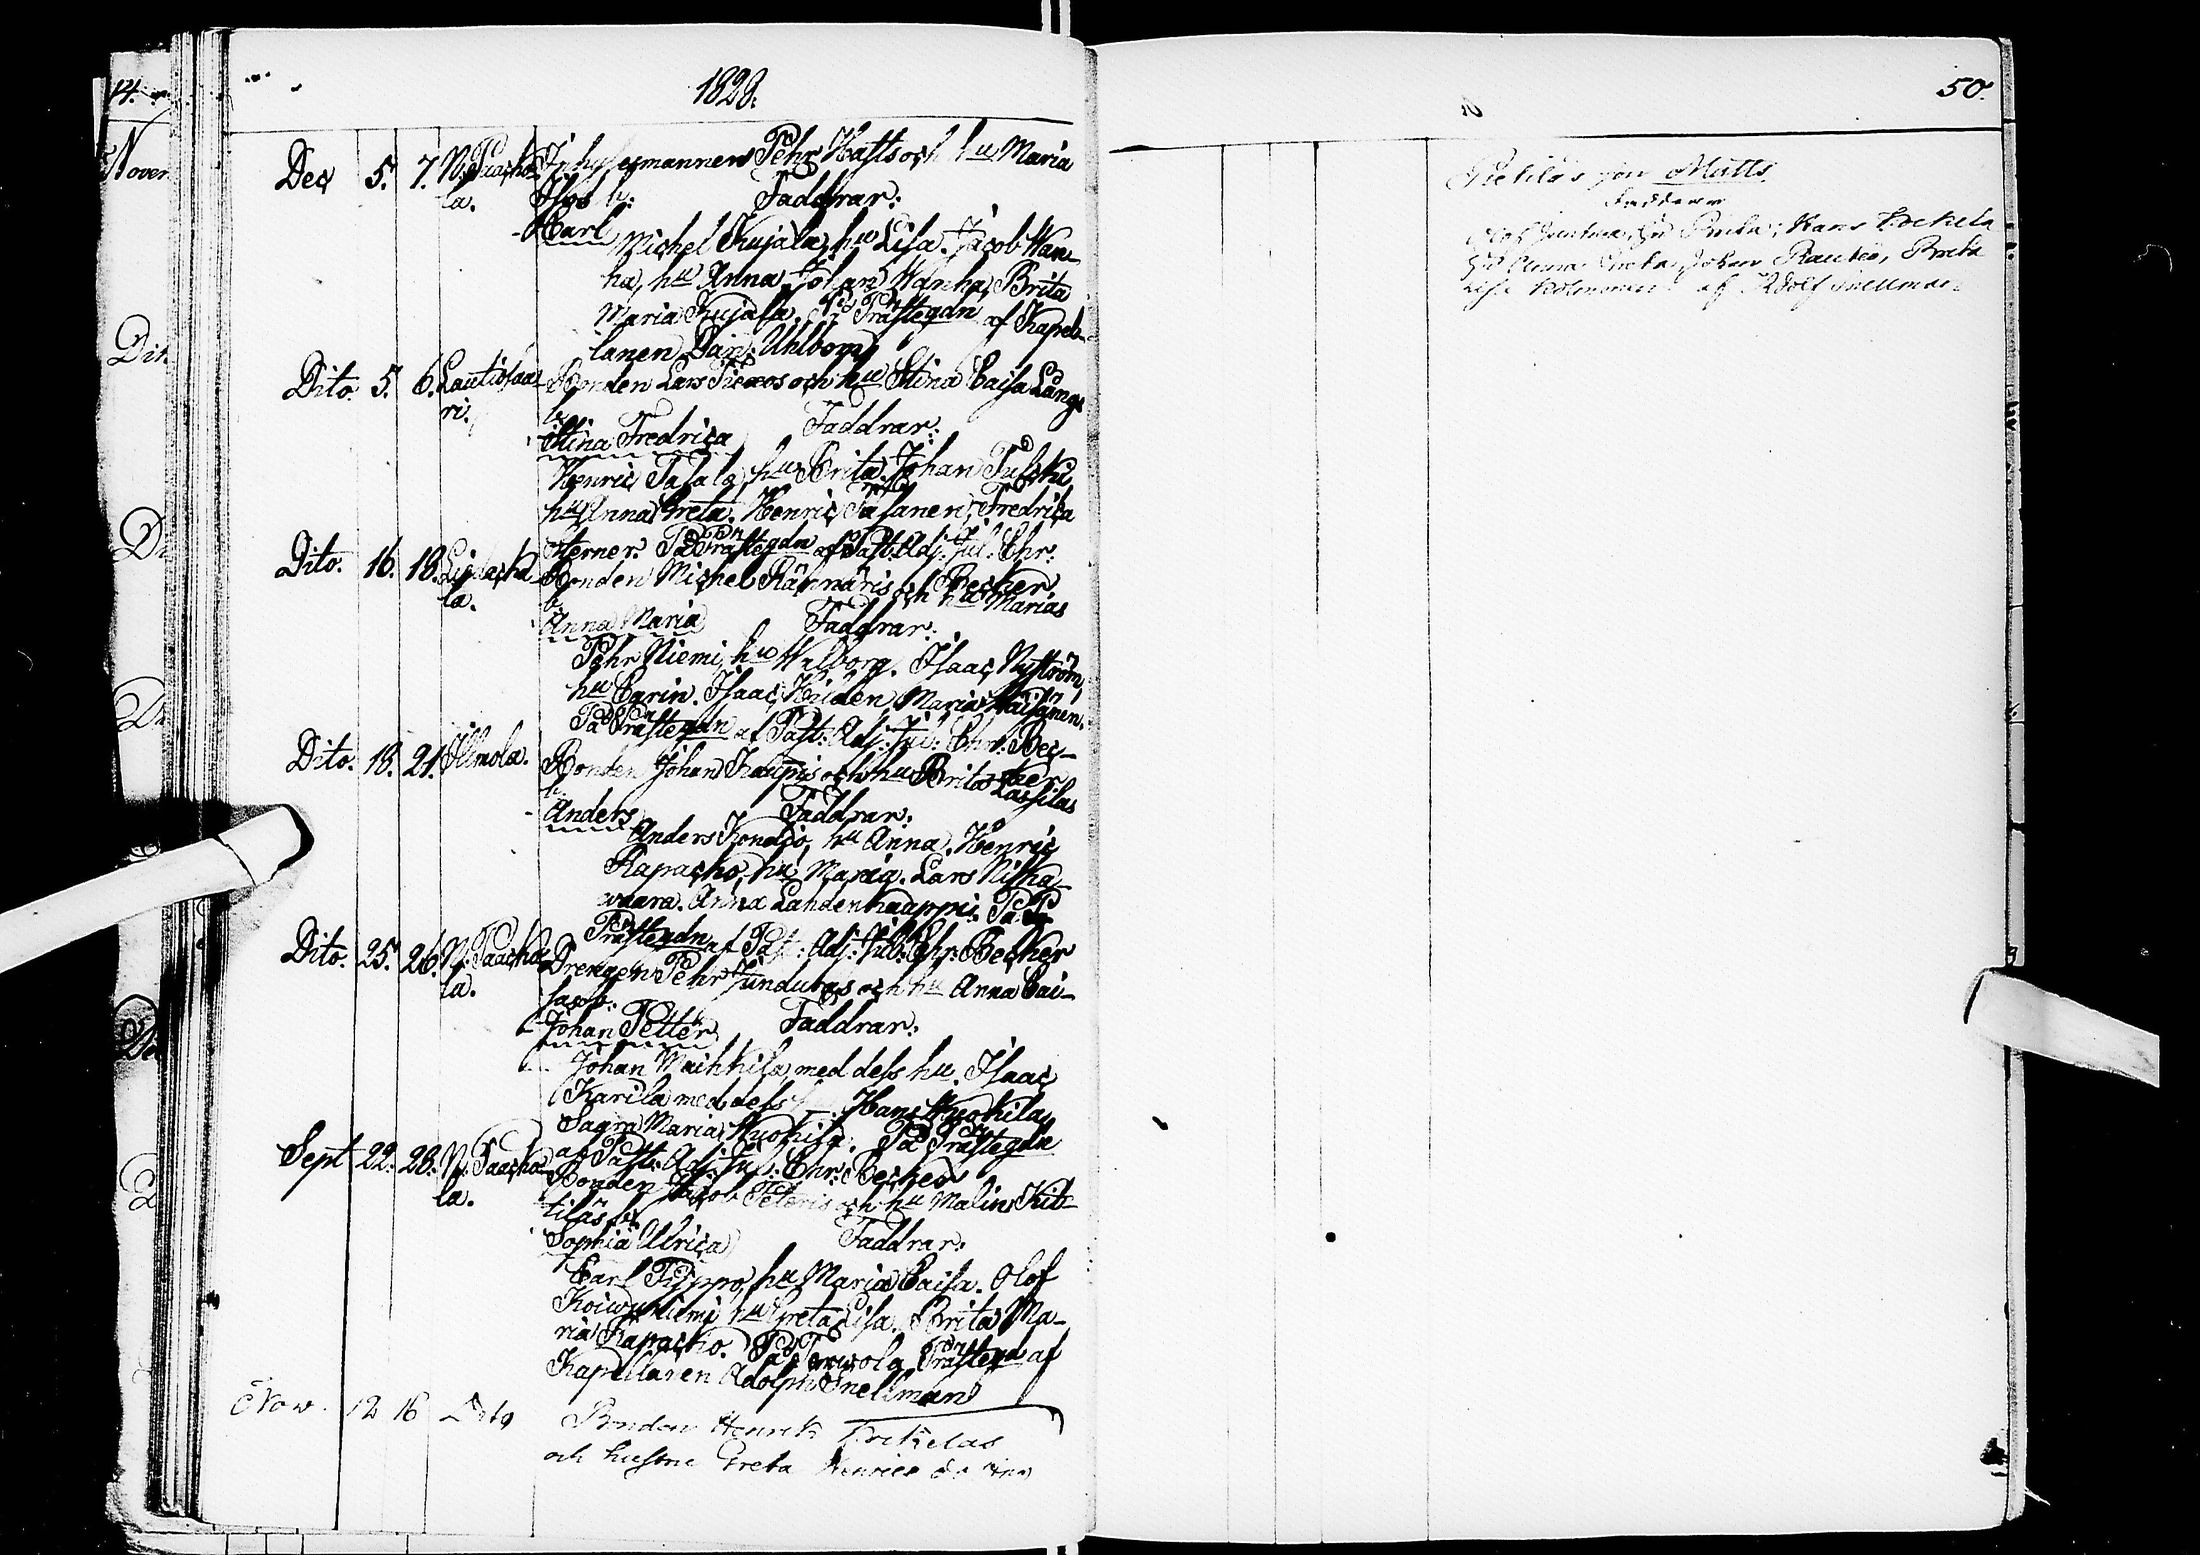 1828.
50.
14.
Novem
Dec 5. 7. N. Paacko- Inhysesmannen Pehr Hatts och hu Maria
la. Isos b: Faddrar:
Carl
Michel Kujala, hu Lisa. Jacob Wan-
ha, hu Anna. Johan Wanha, Brita
Maria Kujala. På Prästegdn af Kapel-
lanen Dan: Uhlbom
Dito. 5. 6. Lautiosaa- Bonden Lars och hu Stina Caisa Långs
ri. b.
Stina Fredrica Faddrar:
Henric Tasala, hu Brita. Johan
hu Anna Greta. Henric Fredrica
På Prästegdn af Past: Adj: Jul: Chr:
Becker
Dito. 16. 18. Liedacka- Bonden Michel Rännäris och hu Marias
la. b.
Anna Maria Faddrar:
Pehr Niemi, hu Walborg. Isaac Nyström,
hu Carin. Isaac Heiden, Maria Väisänen.
På Prästegdn af Past: Adj: Jul: Chr: Bec-
ker
Dito. 18. 21. Ilmola. Bonden Johan Kauppis och hu Brita Lassilas
b.
Anders Faddrar:
Anders Kondio, hu Anna. Henric
Rapacko, hu Maria. Lars Niska-
waara. Anna Lahdenkauppi. På
Prästegdn af Past: Adj: Jul: Chr: Becker
Dito. 25. 26. N. Paacko- Drengen Pehr Junduras och hu Anna Cai-
la. sas b.
Johan Petter Faddrar:
Johan med dess hu. Isaac
Karila med dess Hans Kuokila,
Sagra Maria Kuokila. På Prästegdn
af Past: Adj: Jul: Chr: Becker
Sept 22. 28. N. Paacko- Bonden Jacob Peteris och hu Malin Kit-
la. tiläs b.
Sophia Ulrica Faddrar:
Carl Filppo, hu Maria Caisa. Olof
Koiwuniemi hu Greta Lisa. Brita Ma-
ria Rapacko. På Terwola Prästegdn af
Kapellanen Adolph Snellman
Now. 12 16 Dito Bonden Henrik Erkelas
och hustru Greta Henrics dr
son Matts.
Faddrar
Olof Juntura, hu Brita; Hans Kockela
hu Anna Greta, Johan Rautio, Brita
Lisa af Adolf Snellman